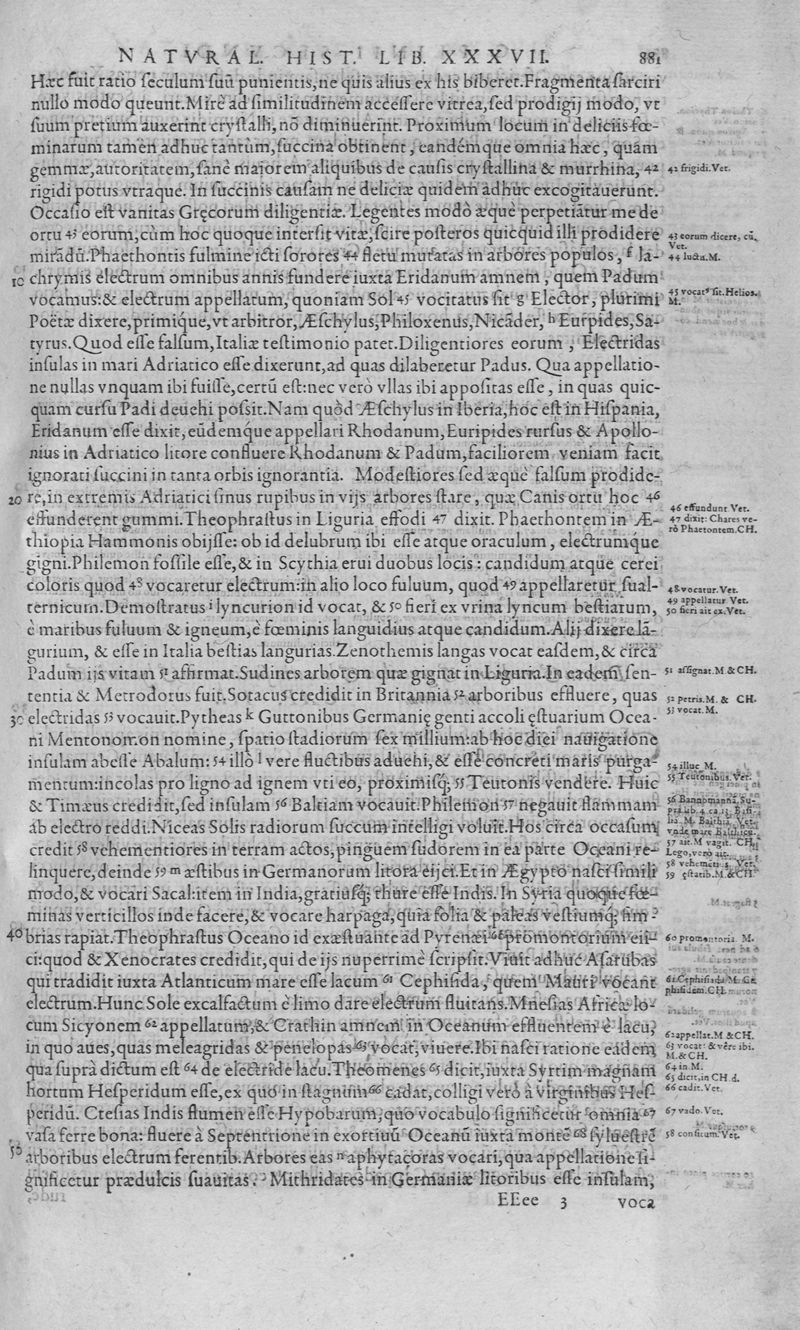 NATVRAL. HIST. LIB. XXXVII. 881
Hæc fuit ratio ſeculum ſuũ punientis, ne quis alius ex his biberet. Fragmenta ſarciri
nullo modo queunt. Mirè ad ſimilitudinem acceſſere vitrea, ſed prodigij modo, vt
ſuum pretium auxerint cryſtalli, nõ diminuerint. Proximum locum in deliciis fœ-
minarum tamen adhuc tantùm, ſuccina obtinent, eandémque omnia hæc, quàm
gemmæ, autoritatem, ſanè maiorem aliquibus de cauſis cryſtallina & murrhina, 42
42 frigidi. Vet.
rigidi potus vtraque. In ſuccinis cauſam ne deliciæ quidem adhuc excogitauerunt.
Occaſio eſt vanitas Gręcorum diligentiæ. Legentes modò æquè perpetiãtur me de
ortu 43 eorum, cùm hoc quoque interſit vitæ, ſcire poſteros quicquid illi prodidere
43 eorum dicere, cũ. Vet.
mirãdũ. Phaethontis fulmine icti ſorores 44 fletu mutatas in arbores populos, f la-
44 luctu. M.
10 chrymis electrum omnibus annis fundere iuxta Eridanum amnem, quem Padum
vocamus: & electrum appellatum, quoniam Sol 45 vocitatus ſit g Elector, plurimi
45 vocatꝰ ſit. Helios. M.
Poëtæ dixere, primique, vt arbitror, Æſchylus, Philoxenus, Nicãder, h Eurpides, Sa-
tyrus. Quod eſſe falſum, Italiæ teſtimonio patet. Diligentiores eorum, Electridas
inſulas in mari Adriatico eſſe dixerunt, ad quas dilaberetur Padus. Qua appellatio-
ne nullas vnquam ibi fuiſſe, certũ eſt: nec verò vllas ibi appoſitas eſſe, in quas quic-
quam curſu Padi deuehi poſsit. Nam quòd Æſchylus in Iberia, hoc eſt in Hiſpania,
Eridanum eſſe dixit, eũdemque appellari Rhodanum, Euripides rurſus & Apollo-
nius in Adriatico litore confluere Rhodanum & Padum, faciliorem veniam facit
ignorati ſuccini in tanta orbis ignorantia. Modeſtiores ſed æquè falſum prodide-
20 re, in extremis Adriatici ſinus rupibus in vijs arbores ſtare, quæ Canis ortu hoc 46
46 effundunt. Vet.
effunderent gummi. Theophraſtus in Liguria effodi 47 dixit. Phaethontem in Æ-
47 dixit: Chares ve-
rò Phaetontem. CH.
thiopia Hammonis obijſſe: ob id delubrum ibi eſſe atque oraculum, electrumque
gigni. Philemon foſſile eſſe, & in Scythia erui duobus locis: candidum atque cerei
coloris quod 48 vocaretur electrum: in alio loco fuluum, quod 49 appellaretur ſual-
48 vocatur. Vet.
49 appellatur Vet.
ternicum. Demoſtratus i lyncurion id vocat, & 50 fieri ex vrina lyncum beſtiarum,
50 fieri ait ex. Vet.
è maribus fuluum & igneum, è fœminis languidius atque candidum. Alij dixere lã-
gurium, & eſſe in Italia beſtias langurias. Zenothemis langas vocat eaſdem, & circa
Padum ijs vitam 51 affirmat. Sudines arborem quæ gignat in Liguria. In eadem ſen-
51 aſſignat. M & CH.
tentia & Metrodorus fuit. Sotacus credidit in Britannia 52 arboribus effluere, quas
52 petris. M. & CH.
30 electridas 53 vocauit. Pytheas k Guttonibus Germanię genti accoli ęſtuarium Ocea-
53 vocat. M.
ni Mentonomon nomine, ſpatio ſtadiorum ſex millium: ab hoc diei nauigatione
inſulam abeſſe Abalum: 54 illò l vere fluctibus aduehi, & eſſe concreti maris purga-
54 illuc M.
mentum: incolas pro ligno ad ignem vti eo, proximiſq; 55 Teutonis vendere. Huic
55 Teutonibus. Vet.
& Timæus credidit, ſed inſulam 56 Baltiam vocauit. Philemon 57 negauit flammam
ab electro reddi. Niceas Solis radiorum ſuccum intelligi voluit. Hos circa occaſum
57 ait. M vagit. CH.
Lego, verò ait.
credit 58 vehementiores in terram actos, pinguem ſudorem in ea parte Oceani re-
58 vehemetius. Vet.
linquere, deinde 59 m æſtibus in Germanorum litora eijci. Et in Ægypto naſci ſimili
59 ęſtatib. M. & CH.
modo, & vocari Sacal: item in India, gratiuſq; thure eſſe Indis. In Syria quoque fœ-
minas verticillos inde facere, & vocare harpaga, quia folia & paleas veſtiumq; fim-
40 brias rapiat. Theophraſtus Oceano id exæſtuante ad Pyrenæi 60 promontorium eii-
60 promontoria M.
ci: quod & Xenocrates credidit, qui de ijs nuperrimè ſcripſit. Viuit adhuc Aſarubas
qui tradidit iuxta Atlanticum mare eſſe lacum 61 Cephiſida, quem Mauri vocant
electrum. Hunc Sole excalfactum è limo dare electrum fluitans. Mneſias Africæ lo-
cum Sicyonem 62 appellatum, & Crathin amnem in Oceanum effluentem è lacu,
62 appellat. M & CH.
in quo aues, quas meleagridas & penelopas 63 vocat, viuere. Ibi naſci ratione eadem
63 vocat: & vere ibi.
M. & CH.
qua ſuprà dictum eſt 64 de electride lacu. Theomenes 65 dicit, iuxta Syrtim magnam
64 in M.
65 dicit, in CH d.
hortum Heſperidum eſſe, ex quo in ſtagnum 66 cadat, colligi verò à virginibus Heſ-
66 cadit. Vet.
peridũ. Cteſias Indis flumen eſſe Hypobarum, quo vocabulo ſignificetur omnia 67
67 vado. Vet.
vaſa ferre bona: fluere à Septentrione in exortiuũ Oceanũ iuxta montẽ 68 ſylueſtrẽ
58 conſitum. Vet.
50 arboribus electrum ferentib. Arbores eas n aphytacoras vocari, qua appellatione ſi-
gnificetur prædulcis ſuauitas. Mithridates in Germaniæ litoribus eſſe inſulam,
EEee 3 voca